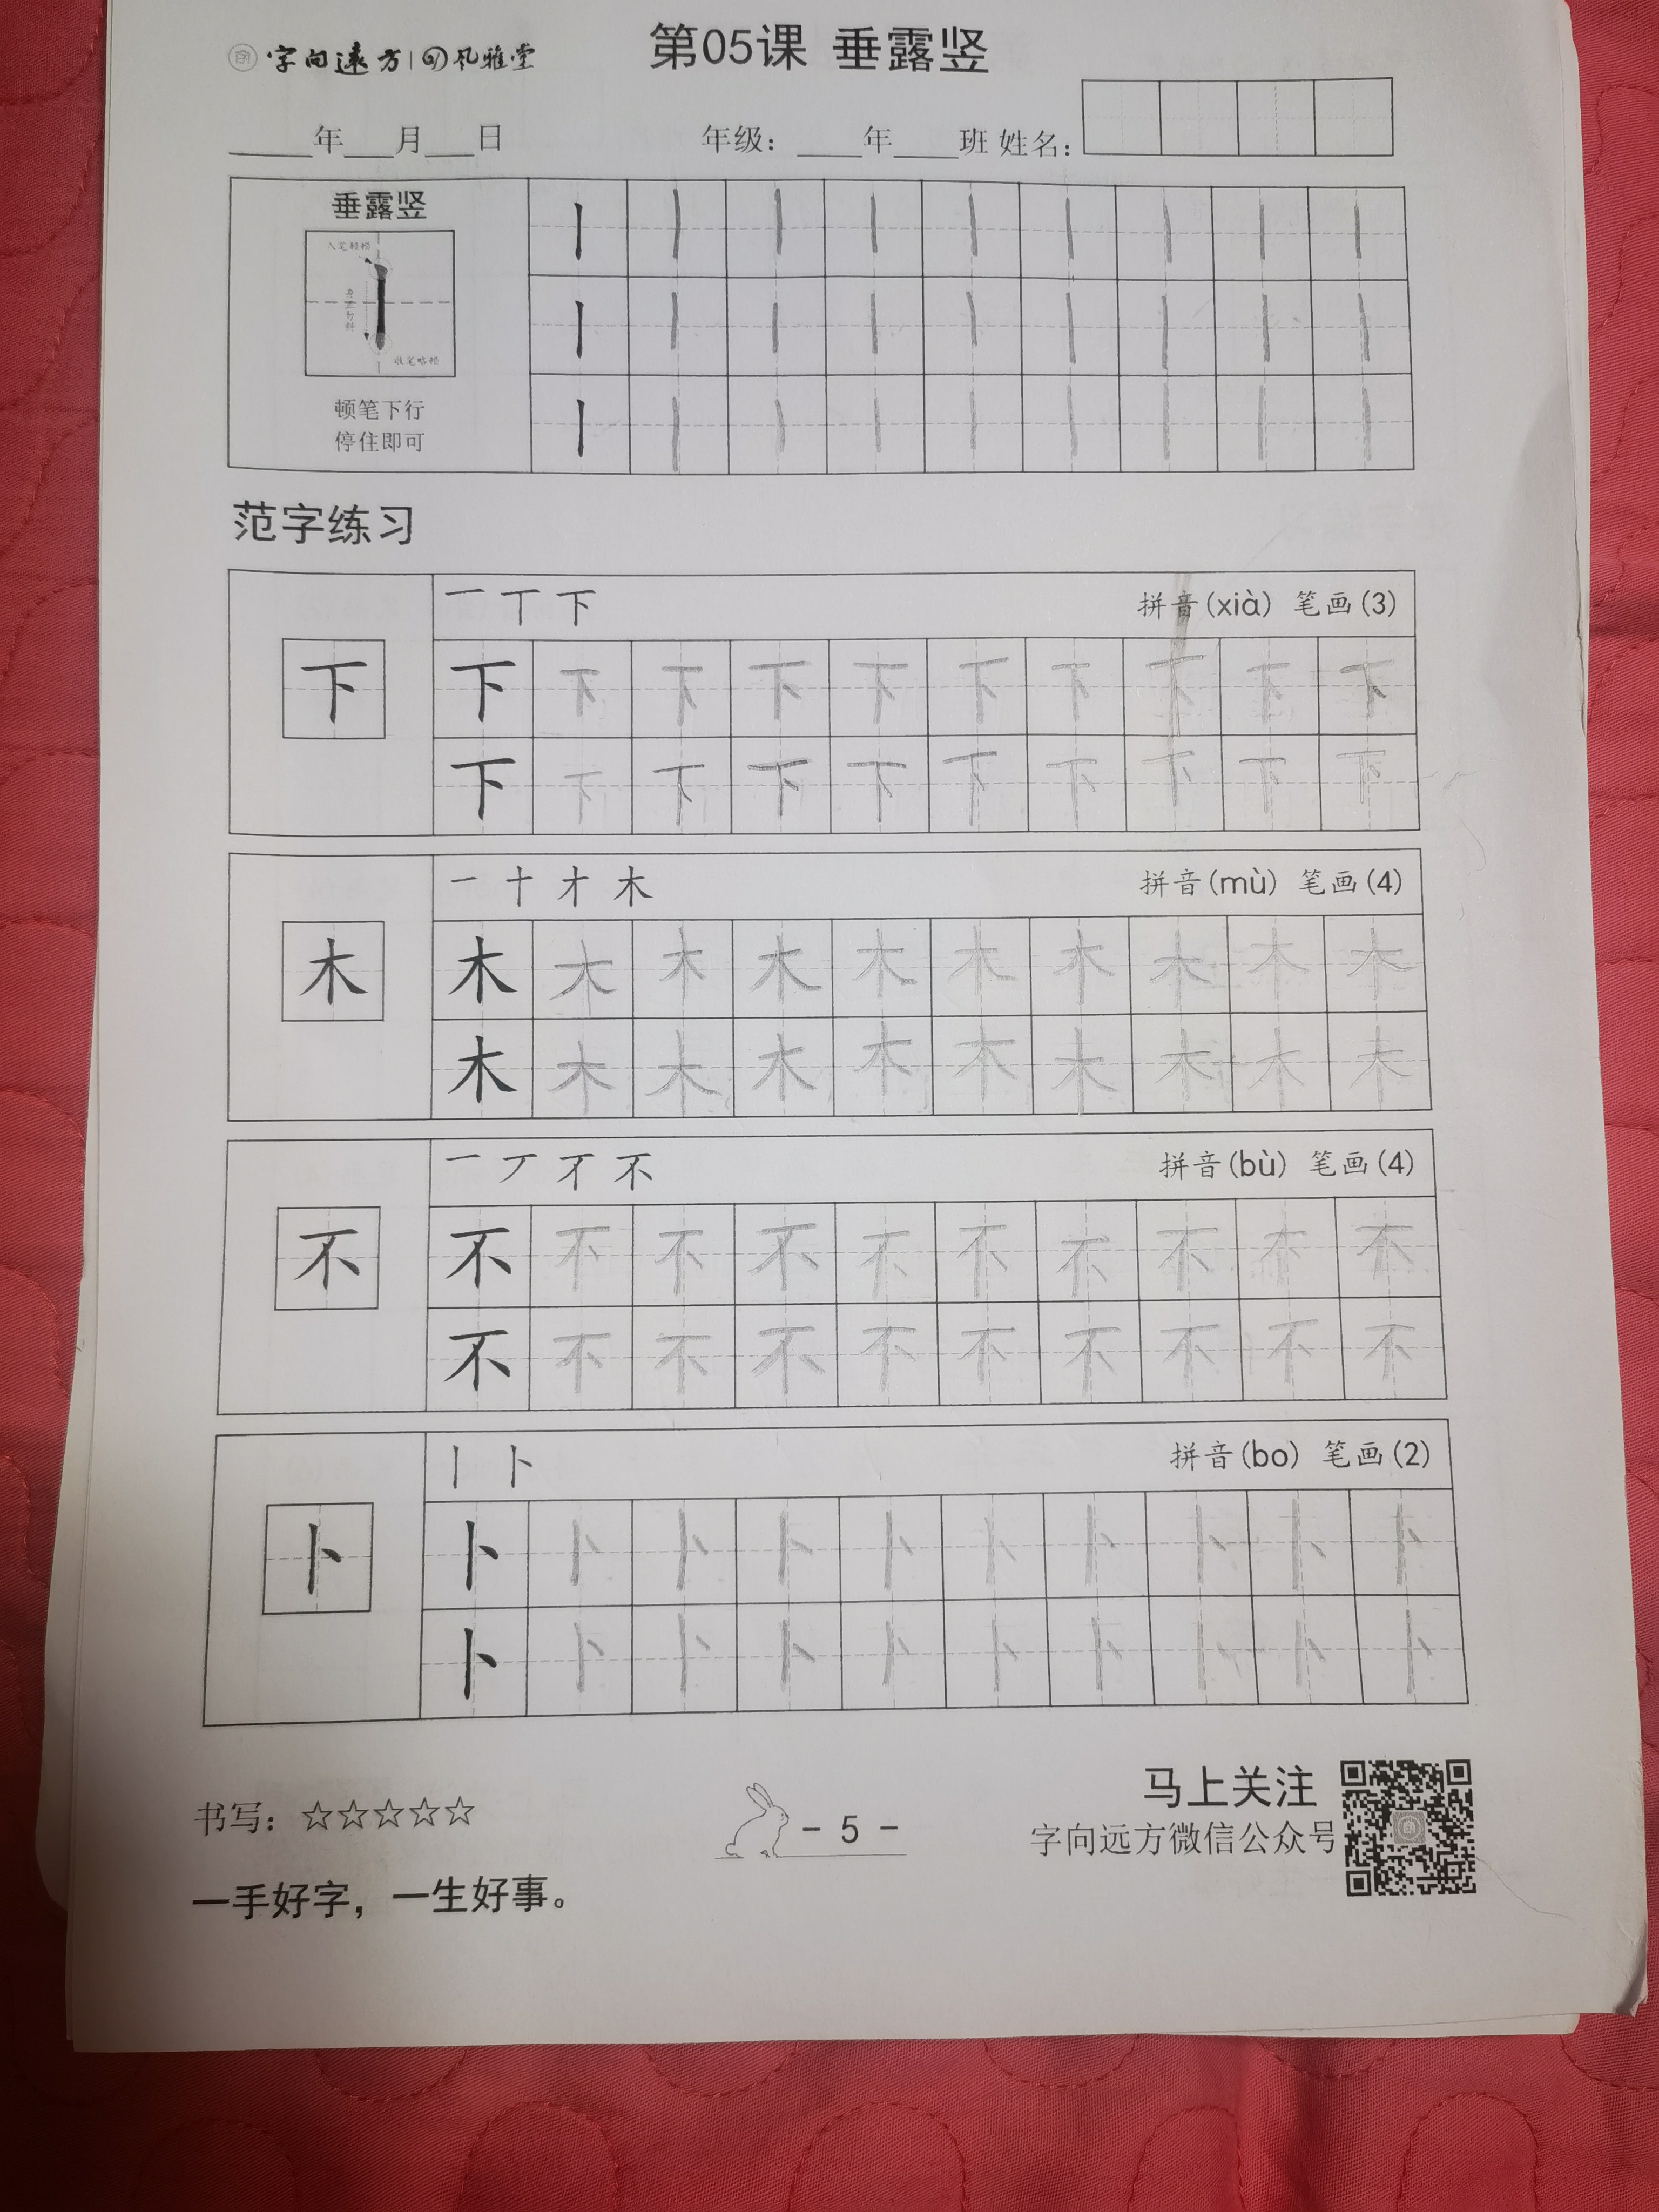 字向远方 风雅堂
第05课 垂露竖
年 月 日 年级： 年 班 姓名：
垂露竖
入笔轻顿
收笔略顿
顿笔下行
停住即可
范字练习
一 丅 下 拼音(xià) 笔画(3)
下 下 下 下 下 下 下 下 下 下 下
下 下 下 下 下 下 下 下 下 下
一 十 才 木 拼音(mù) 笔画(4)
木 木 木 木 木 木 木 木 木 木 木
木 木 木 木 木 木 木 木 木 木
一 丆 不 拼音(bù) 笔画(4)
不 不 不 不 不 不 不 不 不 不 不
不 不 不 不 不 不 不 不 不 不
丨 卜 拼音(bo) 笔画(2)
卜 卜 卜 卜 卜 卜 卜 卜 卜 卜 卜
卜 卜 卜 卜 卜 卜 卜 卜 卜 卜
书写：☆☆☆☆☆
- 5 -
马上关注
字向远方微信公众号
一手好字，一生好事。